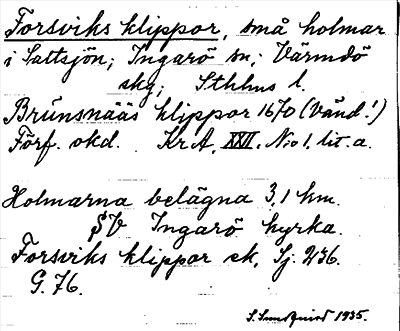 Forsviks klippor, små holmar
i Saltsjön; Ingarö sn; Värmdö
skg; Sthlms l.
Brünsnääs klippor 1670 (Vänd!)
Förf. okd. Kr.A. XXVI. N:o 1. lit. a.
Holmarna belägna 3,1 km.
SV Ingarö kyrka.
Forsviks klippor ek. Sj. 236.
G. 76.
1935.